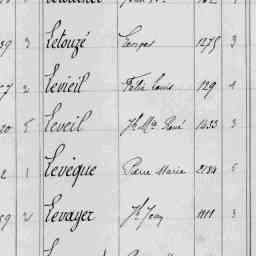 39 3 Letouzé Georges 1275 3
57 2 Levieil Félix Louis 129 1
20 5 Leveil Jh Mie René 1433 3
2 1 Levêque Pierre Marie 2184 5
59 2 Levayer Jh Jean 1111 3